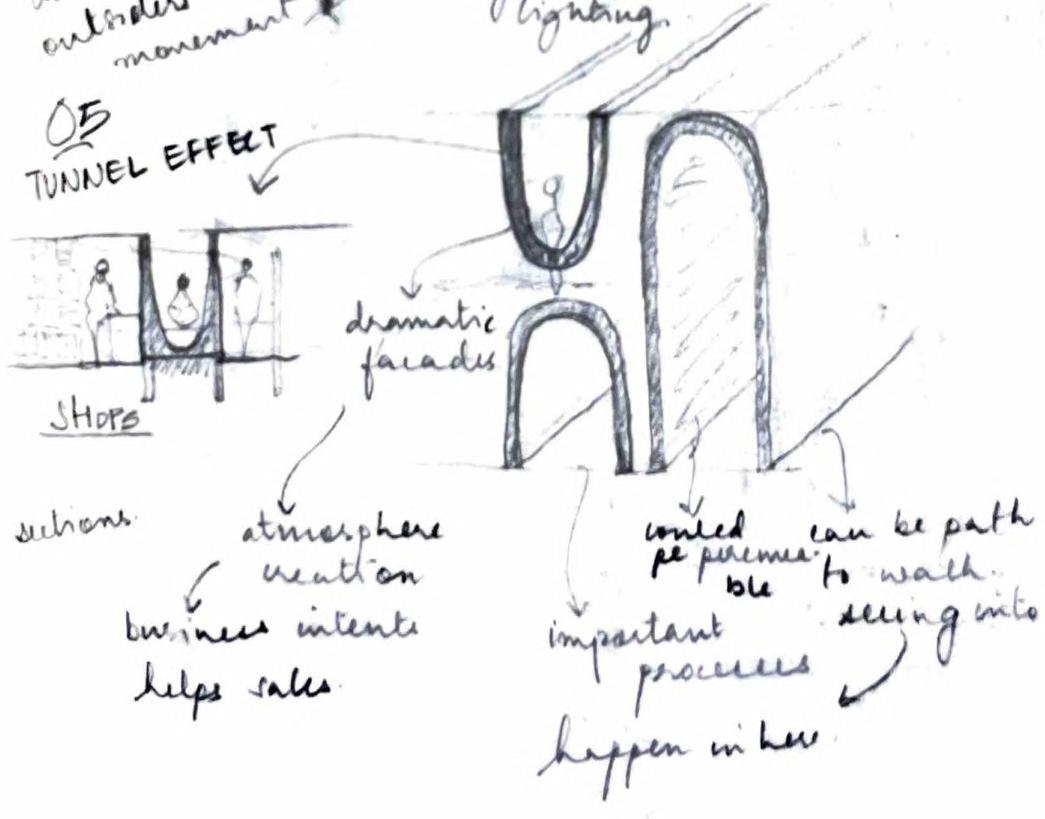 outsiders
movement
lighting.
05
TUNNEL EFFECT
dramatic
facades
SHOPS
sections.
atmosphere
creation
business intents
helps sales.
pe permea-
ble
can be path
to walk.
seeing into
important
processes
happen in here.